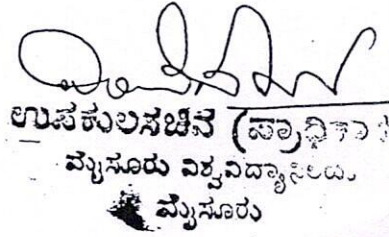 ಉಪಕುಲಸಚಿವ (ಪ್ರಾಧಿಕಾರ
ಮೈಸೂರು ವಿಶ್ವವಿದ್ಯಾನಿಲಯ.
ಮೈಸೂರು